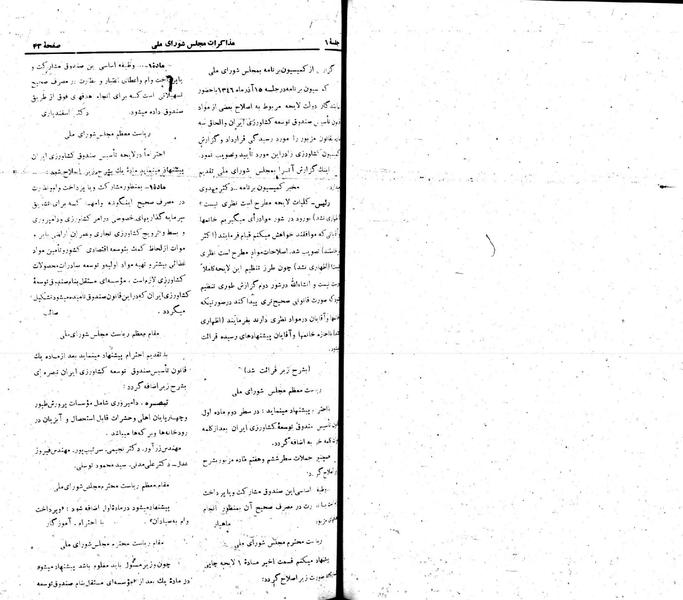 جلسهٔ ۱
مذاکرات مجلس شورای ملی
صفحهٔ ۴۳
گزارش از کمیسیون برنامه بمجلس شورای ملی
کمیسیون برنامه در جلسه ۱۵ آذرماه ۱۳۴۶ باحضور
نمایندگان دولت لایحه مربوط به اصلاح بعضی از مواد
قانون تأسیس صندوق توسعه کشاورزی ایران والحاق سه
ماده بقانون مزبور را مورد رسیدگی قرارداد و گزارش
کمیسیون کشاورزی را در این مورد تأیید و تصویب نمود.
اینک گزارش آنرا بمجلس شورای ملی تقدیم
مخبر کمیسیون برنامه ـ دکتر مهدوی
رئیس ـ کلیات لایحه مطرح است نظری نیست؟
(اظهاری نشد) بورود در شور مواد رأی میگیریم خانمها
و آقایانی که موافقند خواهش میکنم قیام فرمایند (اکثر
برخاستند) تصویب شد. اصلاحات مواد مطرح است نظری
نیست؟ (اظهاری نشد) چون طرز تنظیم این لایحه کاملاً
نیست و انشاءالله در شور دوم گزارش طوری تنظیم
که صورت قانونی صحیح‌تری پیدا کند در صورتیکه
خانمها و آقایان در مواد نظری دارند بفرمایند (اظهاری
نشد) باجازه خانمها و آقایان پیشنهادهای رسیده قرائت
میشود.
(بشرح زیر قرائت شد)
ریاست معظم مجلس شورای ملی
پیشنهاد مینماید: در سطر دوم ماده اول
تأسیس صندوق توسعهٔ کشاورزی ایران بعد از کلمه
به اضافه گردد.
همچنین جملات سطر ششم و هفتم ماده مزبور بشرح
اصلاح گردد.
وظیفه اساسی این صندوق مشارکت و یا پرداخت
در مصرف صحیح آن بمنظور انجام
مزبور ماهیار
ریاست محترم مجلس شورای ملی
پیشنهاد میکنم قسمت اخیر مادهٔ ۱ لایحه چاپی
بصورت زیر اصلاح گردد:
ماده۱ـ... وظیفه اساسی این صندوق مشارکت و
یا پرداخت وام و اعطای اعتبار و نظارت در مصرف صحیح
تسهیلاتی است که برای انجام هدفهای فوق از طریق
صندوق داده میشود. دکتر اسفندیاری
ریاست معظم مجلس شورای ملی
احتراماً در لایحه تأسیس صندوق کشاورزی ایران
پیشنهاد مینماید مادهٔ یک بشرح زیر اصلاح شود:
ماده۱ـ بمنظور مشارکت و یا پرداخت وام و نظارت
در مصرف صحیح اینگونه وامها که برای تشویق
سرمایه گذاریهای خصوصی در امر کشاورزی و دامپروری
و بسط و ترویج کشاورزی تجاری و عمران اراضی بایر و
موات از لحاظ کمک بتوسعه اقتصادی کشور و تأمین مواد
غذائی بیشتر و تهیه مواد اولیه و توسعه صادرات محصولات
کشاورزی لازم است، مؤسسه‌ای مستقل بنام صندوق توسعهٔ
کشاورزی ایران که در این قانون صندوق نامیده میشود تشکیل
میگردد. صائب
مقام معظم ریاست مجلس شورای ملی
با تقدیم احترام پیشنهاد مینماید بعد از ماده یک
قانون تأسیس صندوق توسعه کشاورزی ایران تبصره‌ای
بشرح زیر اضافه گردد:
تبصره. دامپروری شامل مؤسسات پرورش طیور
و چهارپایان اهلی و حشرات قابل استحصال و آبزیان در
رودخانه‌ها و برکه‌ها میباشد.
مهندس زرآور. دکتر نجیمی. سرتیپ‌پور. مهندس فیروز
عدل ـ دکتر علی مدنی. سید محمود توسلی.
مقام معظم ریاست محترم مجلس شورای ملی
پیشنهاد میشود در مادهٔ اول اضافه شود: «و پرداخت
وام به صیادان» با احترام ـ آموزگار
مقام معظم ریاست محترم مجلس شورای ملی
چون وزیر مسئول باید معلوم باشد پیشنهاد میشود
در مادهٔ یک بعد از «مؤسسه‌ای مستقل بنام صندوق توسعه